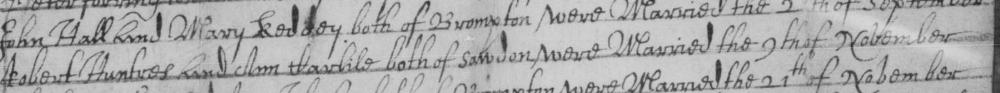 John Hall and Mary Keddey both of Brompton were Married the 2 th of September
Robert Huntres and Ann Karlile both of Sawdon were Married the 9 th of November
were Married the 21th of November